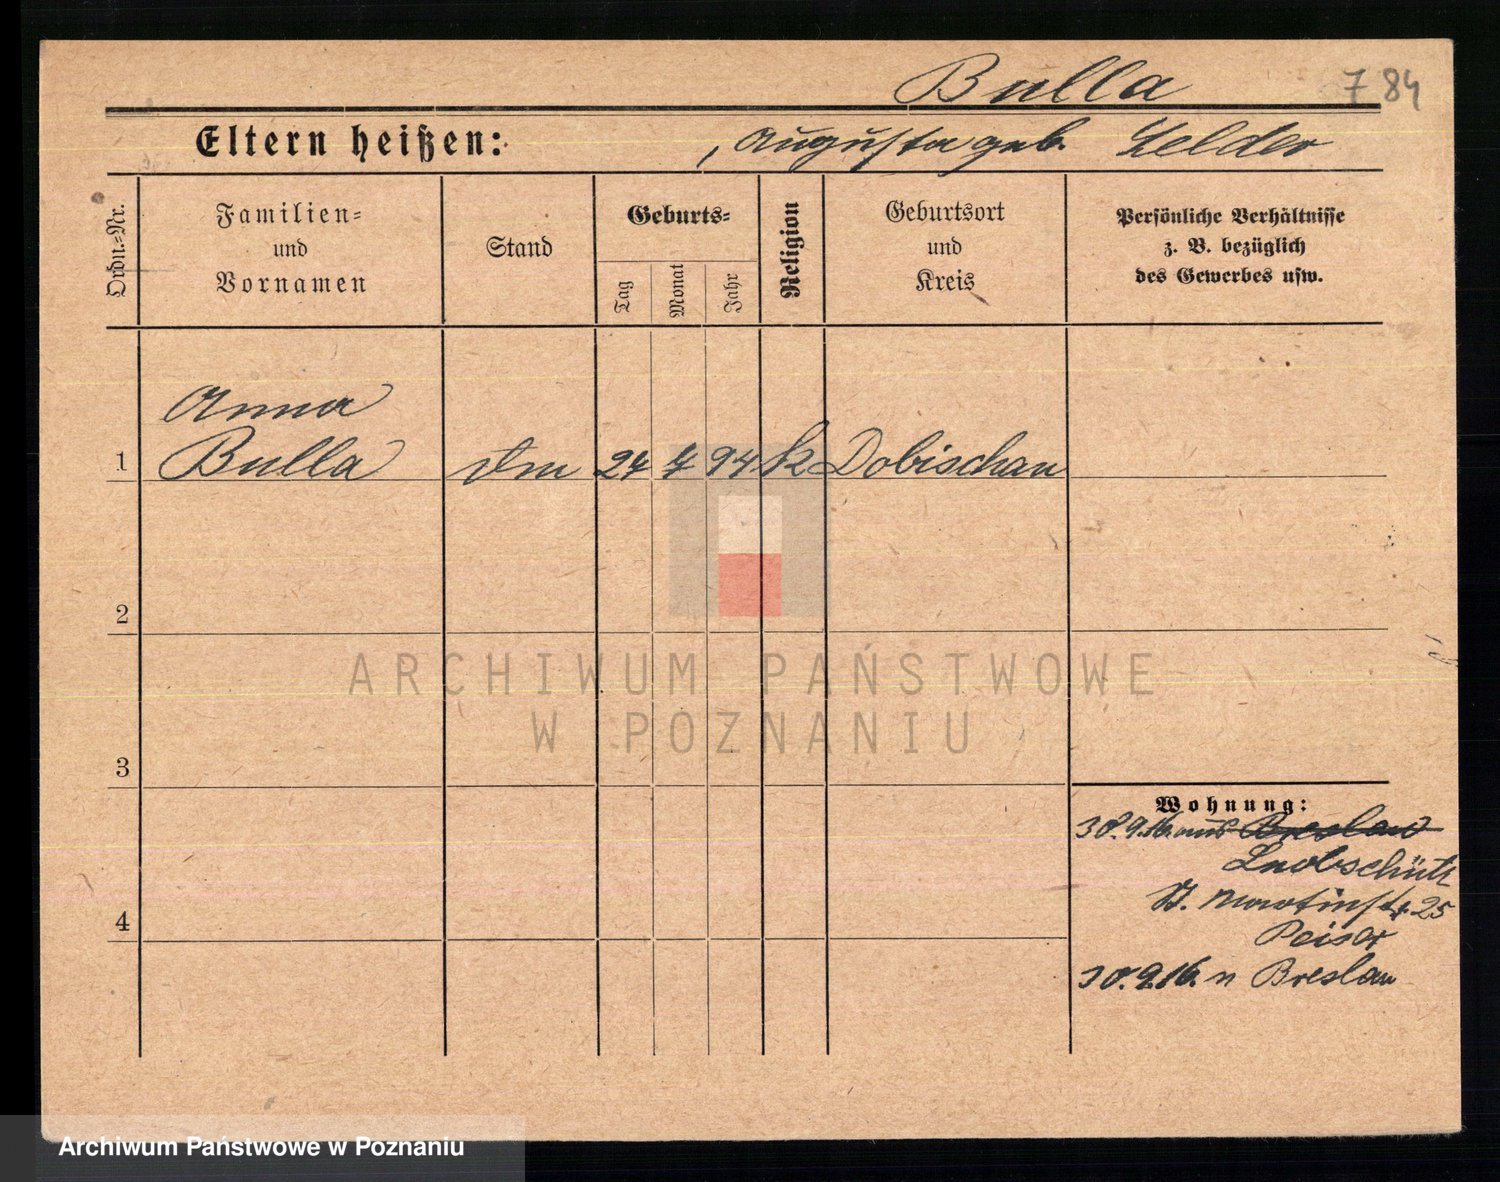 Bulla
7 84
Eltern heißen:
, Augusta geb.
Ordn.=Nr.
Familien=
und
Vornamen
Stand
Geburts=
Tag
Monat
Jahr
Religion
Geburtsort
und
Kreis
Persönliche Verhältnisse
z. B. bezüglich
des Gewerbes usw.
Anna
1 Bulla 24 7 94 k Dobischau
2
3
4
Wohnung:
30.9.16. aus Breslau
Leobschütz
St. Martinstr. 25
Peiser
30.9.16. n Breslau
ARCHIWUM PAŃSTWOWE
W POZNANIU
Archiwum Państwowe w Poznaniu